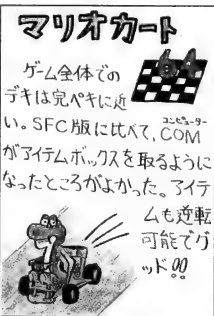 マリオカート
ゲーム全体での
デキは完ペキに近
い。SFC版に比べて、COM
コンピューター
がアイテムボックスを取るように
なったところがよかった。アイテ
ムも逆転
可能でグ
ッド!!